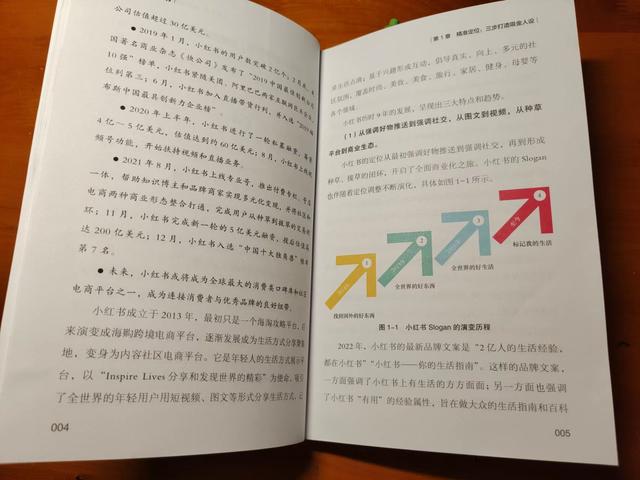 公司估值超过 30 亿美元。
● 2019 年 1 月，小红书的用户数突破 2 亿个；2 月，美
国著名商业杂志《快公司》发布了“2019 中国最佳创新公司
10 强”榜单，小红书紧随美团、阿里巴巴两家互联网巨头企业，
位列第三；6 月，小红书加入直播带货行列，并入选“2019 福
布斯中国最具创新力企业榜”。
● 2020 年上半年，小红书进行了一轮私募融资，募资
4 亿—5 亿美元，估值达到约 60 亿美元；8 月，小红书上线视
频号功能，开始扶持视频和直播业务。
● 2021 年 8 月，小红书上线专业号，推出付费专栏、号店
一体，帮助知识博主和品牌商家实现多元化变现，并将社区和
电商两种商业形态整合打通，完成用户从种草到拔草的交易闭
环；11 月，小红书完成新一轮的 5 亿美元融资，投后估值高
达 200 亿美元；12 月，小红书入选“中国十大独角兽”榜单
第 7 名。
● 未来，小红书或将成为全球最大的消费类口碑库和社区
电商平台之一，成为连接消费者与优秀品牌的良好纽带。
小红书成立于 2013 年，最初只是一个海淘攻略平台，后
来演变成海购跨境电商平台，逐渐发展成为生活方式分享聚集
地，变身为内容社区电商平台。它是年轻人的生活方式展示平
台，以“Inspire Lives 分享和发现世界的精彩”为使命，吸引
了全世界的年轻用户用短视频、图文等形式分享生活方式，记
004
第 1 章 精准定位：三步打造吸金人设
录生活点滴；基于兴趣形成互动，倡导真实、向上、多元的社
区氛围，覆盖时尚、美妆、美食、旅行、家居、健身、母婴等
各个领域。
小红书历时 9 年的发展，呈现出三大特点和趋势。
（1）从强调好物推送到强调社交，从图文到视频，从种草
平台到商业生态。
小红书的定位从最初强调好物推送到强调社交，再到形成
种草、拔草的闭环，开启了全面商业化之旅。小红书的 Slogan
也伴随着定位调整不断演化，具体如图 1-1 所示。
1
2
3
4
至今
找到国外的好东西
全世界的好东西
全世界的好生活
标记我的生活
图 1-1 小红书 Slogan 的演变历程
2022 年，小红书的最新品牌文案是“2 亿人的生活经验，
都在小红书”“小红书——你的生活指南”。这样的品牌文案，
一方面强调了小红书上有生活的方方面面；另一方面也强调
了小红书“有用”的经验属性，旨在做大众的生活指南和百科
005